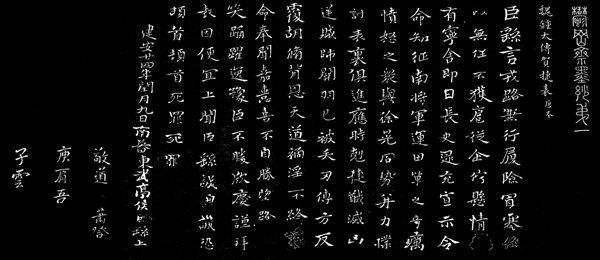 鬱岡齋墨妙第一
魏鍾大傅賀捷表
臣繇言戎路兼行履險冒寒臣
以無任不獲扈從企佇懸情無
有寧舍即日長史逮充宣示令
命知征南將軍運田單之奇厲
憤怒之眾與徐晃同勢并力撲
討表裏俱進應時剋捷馘滅凶
逆賊帥關羽已被矢刃傅方反
覆胡脩背恩天道禍淫不終厥
命奉聞嘉憙喜不自勝望路載
笑踊躍逸豫臣不勝欣慶謹拜
表因便宜上聞臣繇誠皇誠恐
頓首頓首死罪死罪
建安廿四年閏月九日南蕃東武亭侯臣繇上
敬道
庾肩吾
子雲